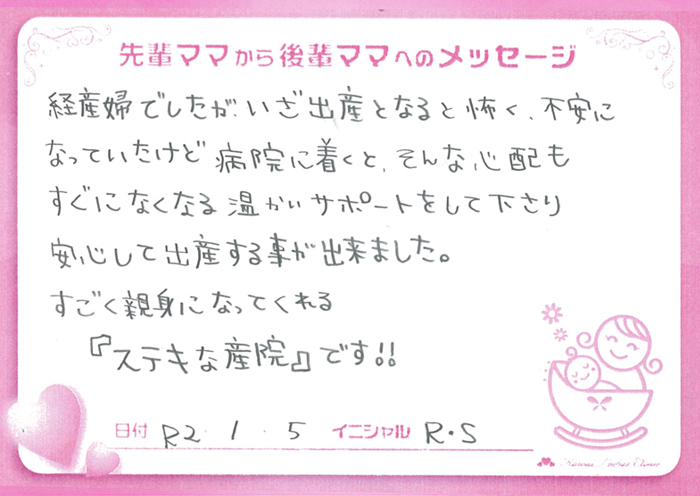 先輩ママから後輩ママへのメッセージ
経産婦でしたが、いざ出産となると怖く、不安に
なっていたけど病院に着くと、そんな心配も
すぐになくなる温かいサポートをして下さり
安心して出産する事が出来ました。
すごく親身になってくれる
『ステキな産院』です!!
日付 R2・1・5 イニシャル R・S